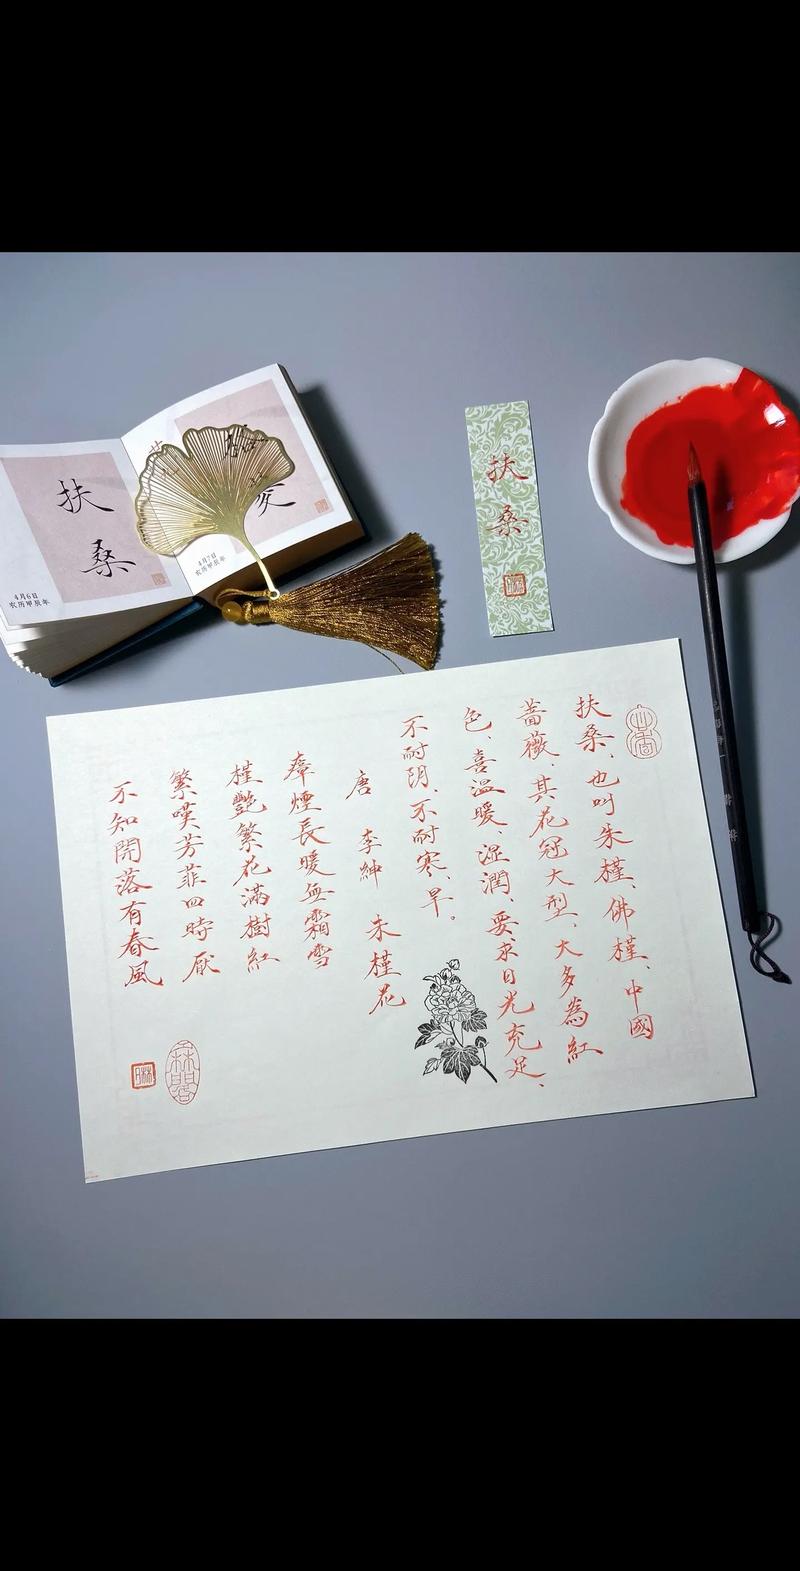 扶桑
4月6日
农历甲辰年
4月7日
农历甲辰年
扶桑
扶桑、也叫朱槿、佛槿、中國
蔷薇、其花冠大型、大多為紅
色、喜溫暖、湿潤、要求日光充足、
不耐阴、不耐寒、旱。
唐 李紳 朱槿花
瘴煙長暖無霜雪
槿艷繁花滿樹紅
繁嘆芳菲四時厭
不知開落有春風